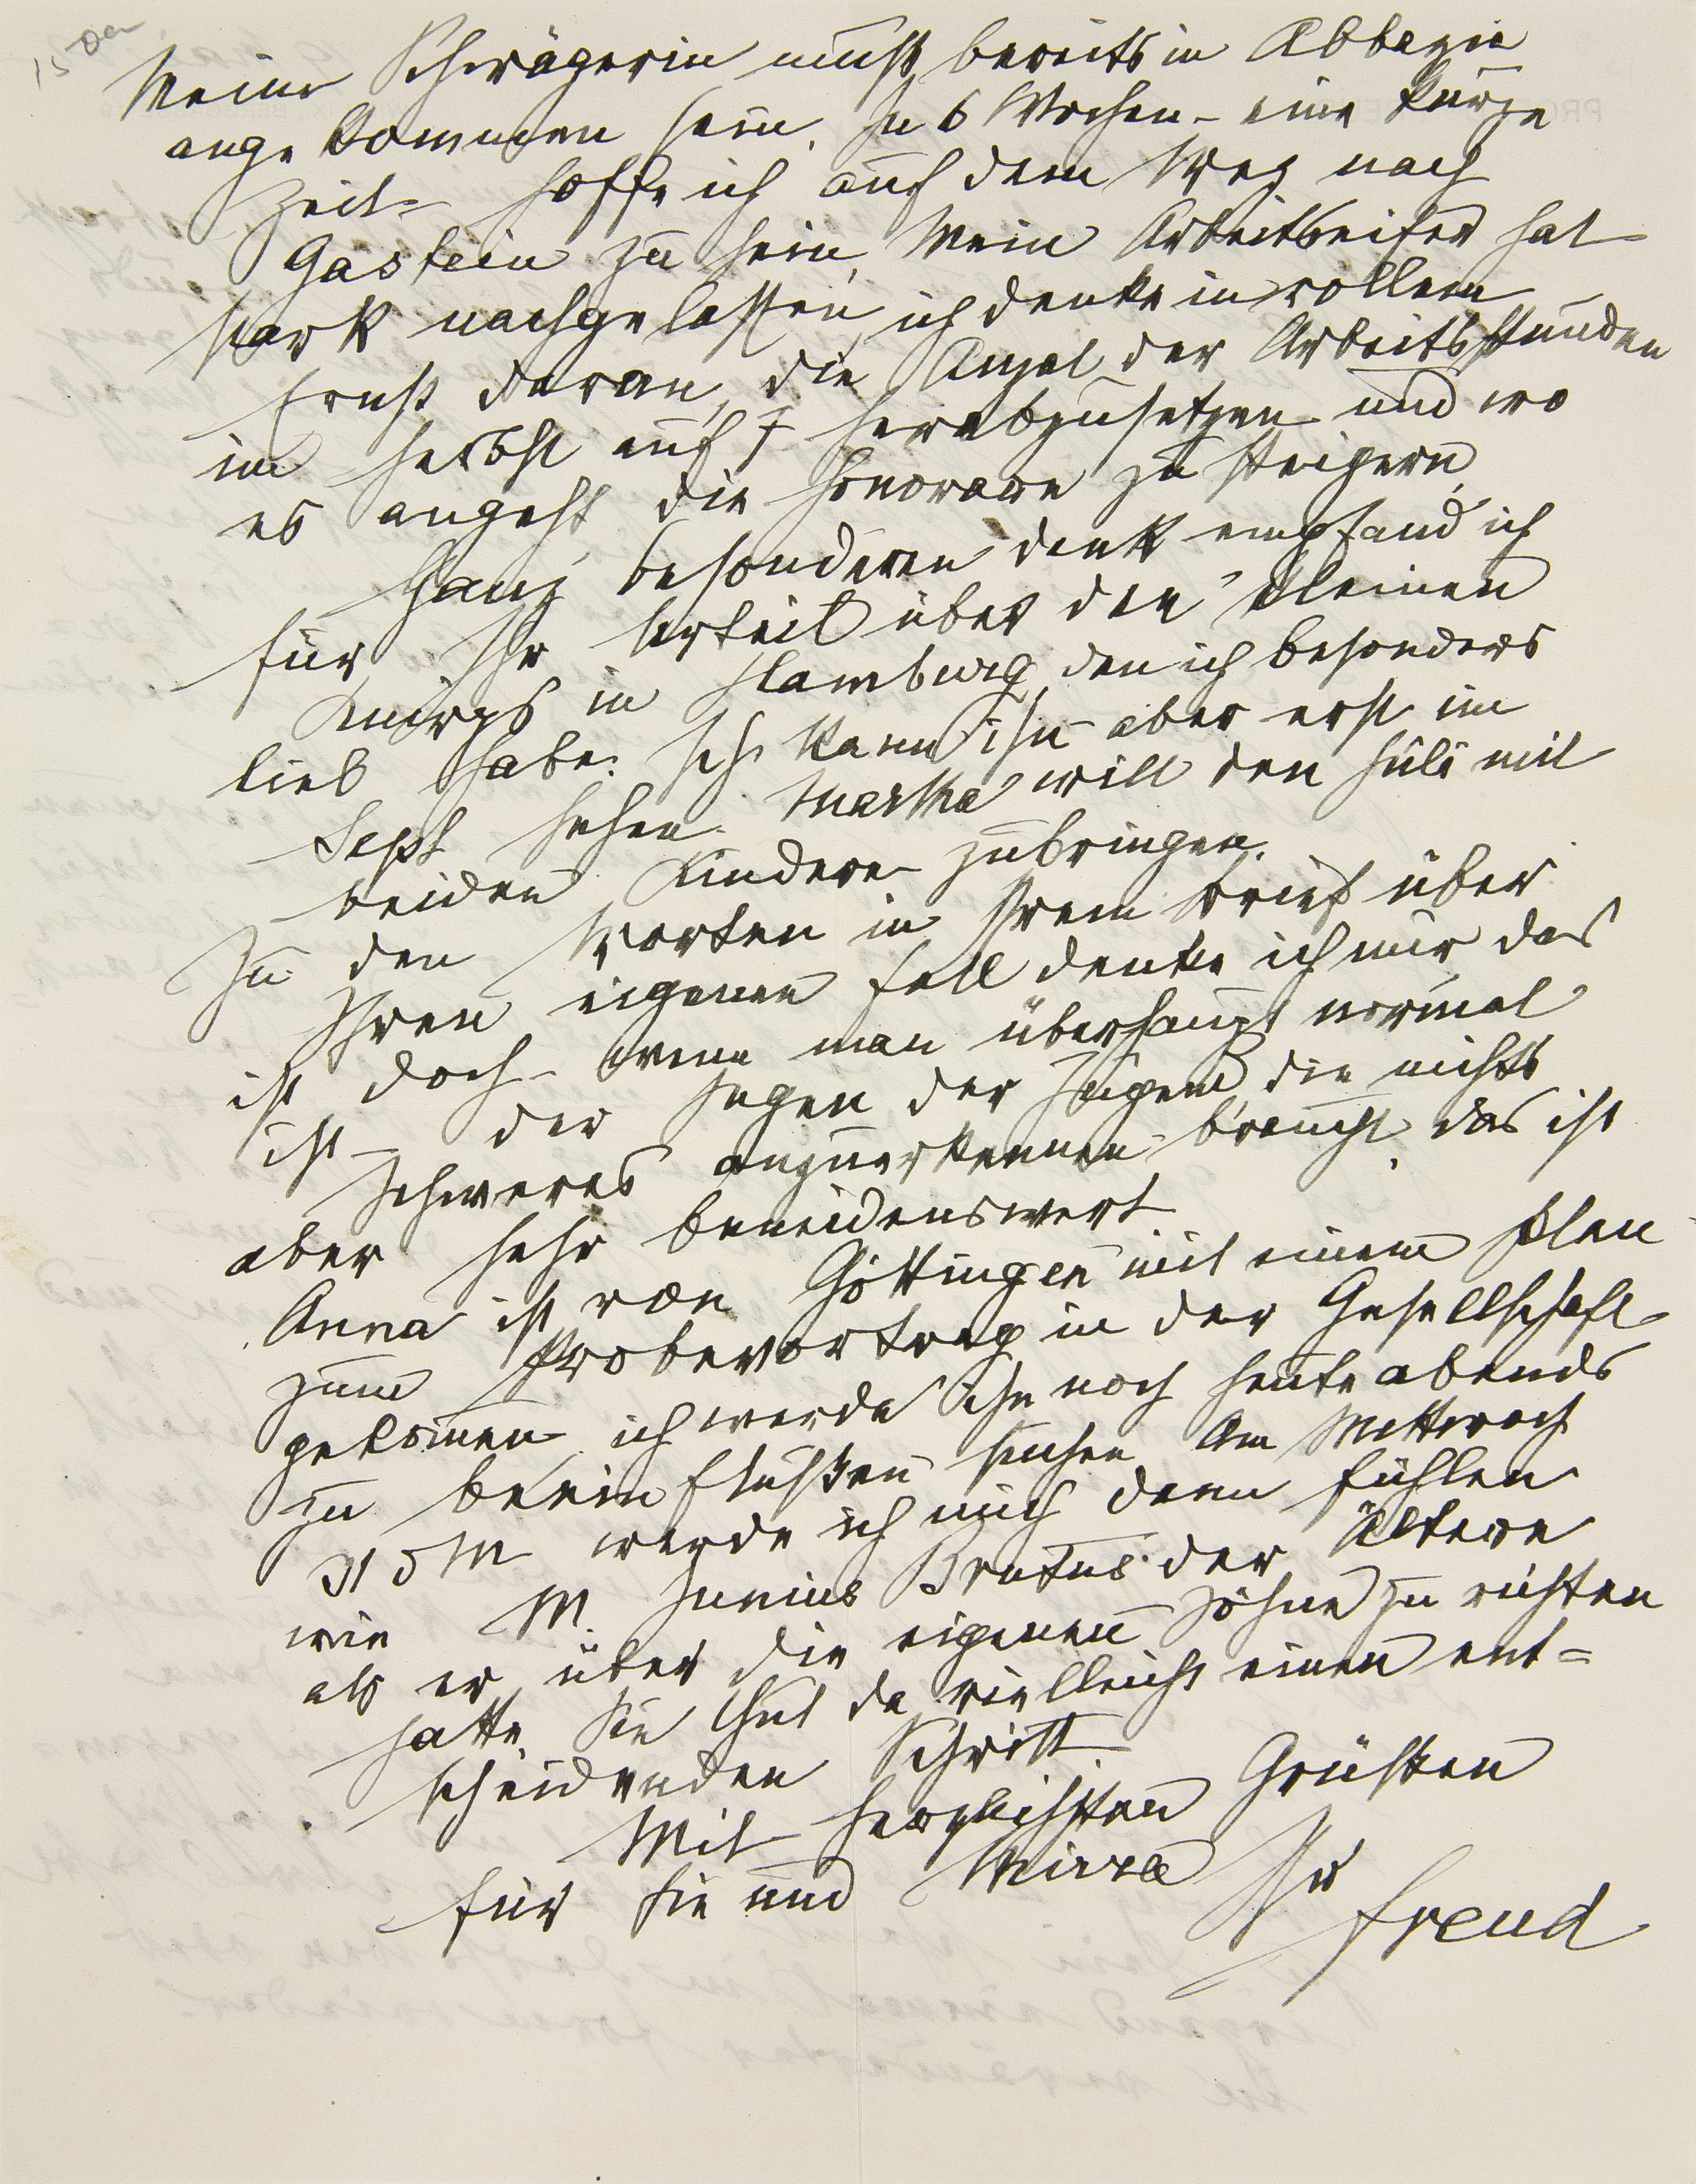 Meine Schwägerin muß bereits in Abbazia
angekommen sein. In 6 Wochen – eine kurze
Zeit – hoffe ich auf dem Weg nach
Gastein zu sein. Mein Arbeitseifer hat
stark nachgelassen, ich denke in vollem
Ernst daran, die Anzal der Arbeitsstunden
im Herbst auf 7 herabzusetzen und wo
es angeht, die Honorare zu steigern.
Ganz besonderen Dank empfand ich
für Ihr Urteil über den kleinen
Knirps in Hamburg, den ich besonders
lieb habe. Ich kann ihn aber erst im
Sept sehen. Martha will den Juli mit
beiden Kindern zubringen.
Zu den Worten in Ihrem Brief über
Ihren eigenen Fall denke ich mir das
ist doch – wenn man überhaupt normal
ist – der Segen der Jugend, die nichts
Schweres anzuerkennen braucht, das ist
aber sehr beneidenswert.
Anna ist von Göttingen mit einem Plan
zum Probevortrag in der Gesellschaft
gekommen, ich werde ihn noch heute abends
zu beeinflußen suchen. Am Mittwoch
31 5 M werde ich mich dann fühlen
wie M. Junius Brutus der ältere
als er über die eigenen Söhne zu richten
hatte. Sie thut da vielleicht einen ent=
scheidenden Schritt.
Mit herzlichsten Grüßen
für Sie und Mirra Ihr
Freud